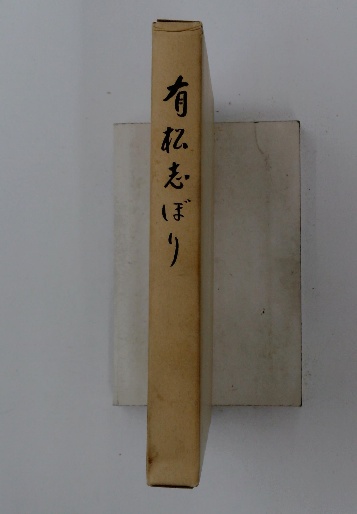 有松志ぼり